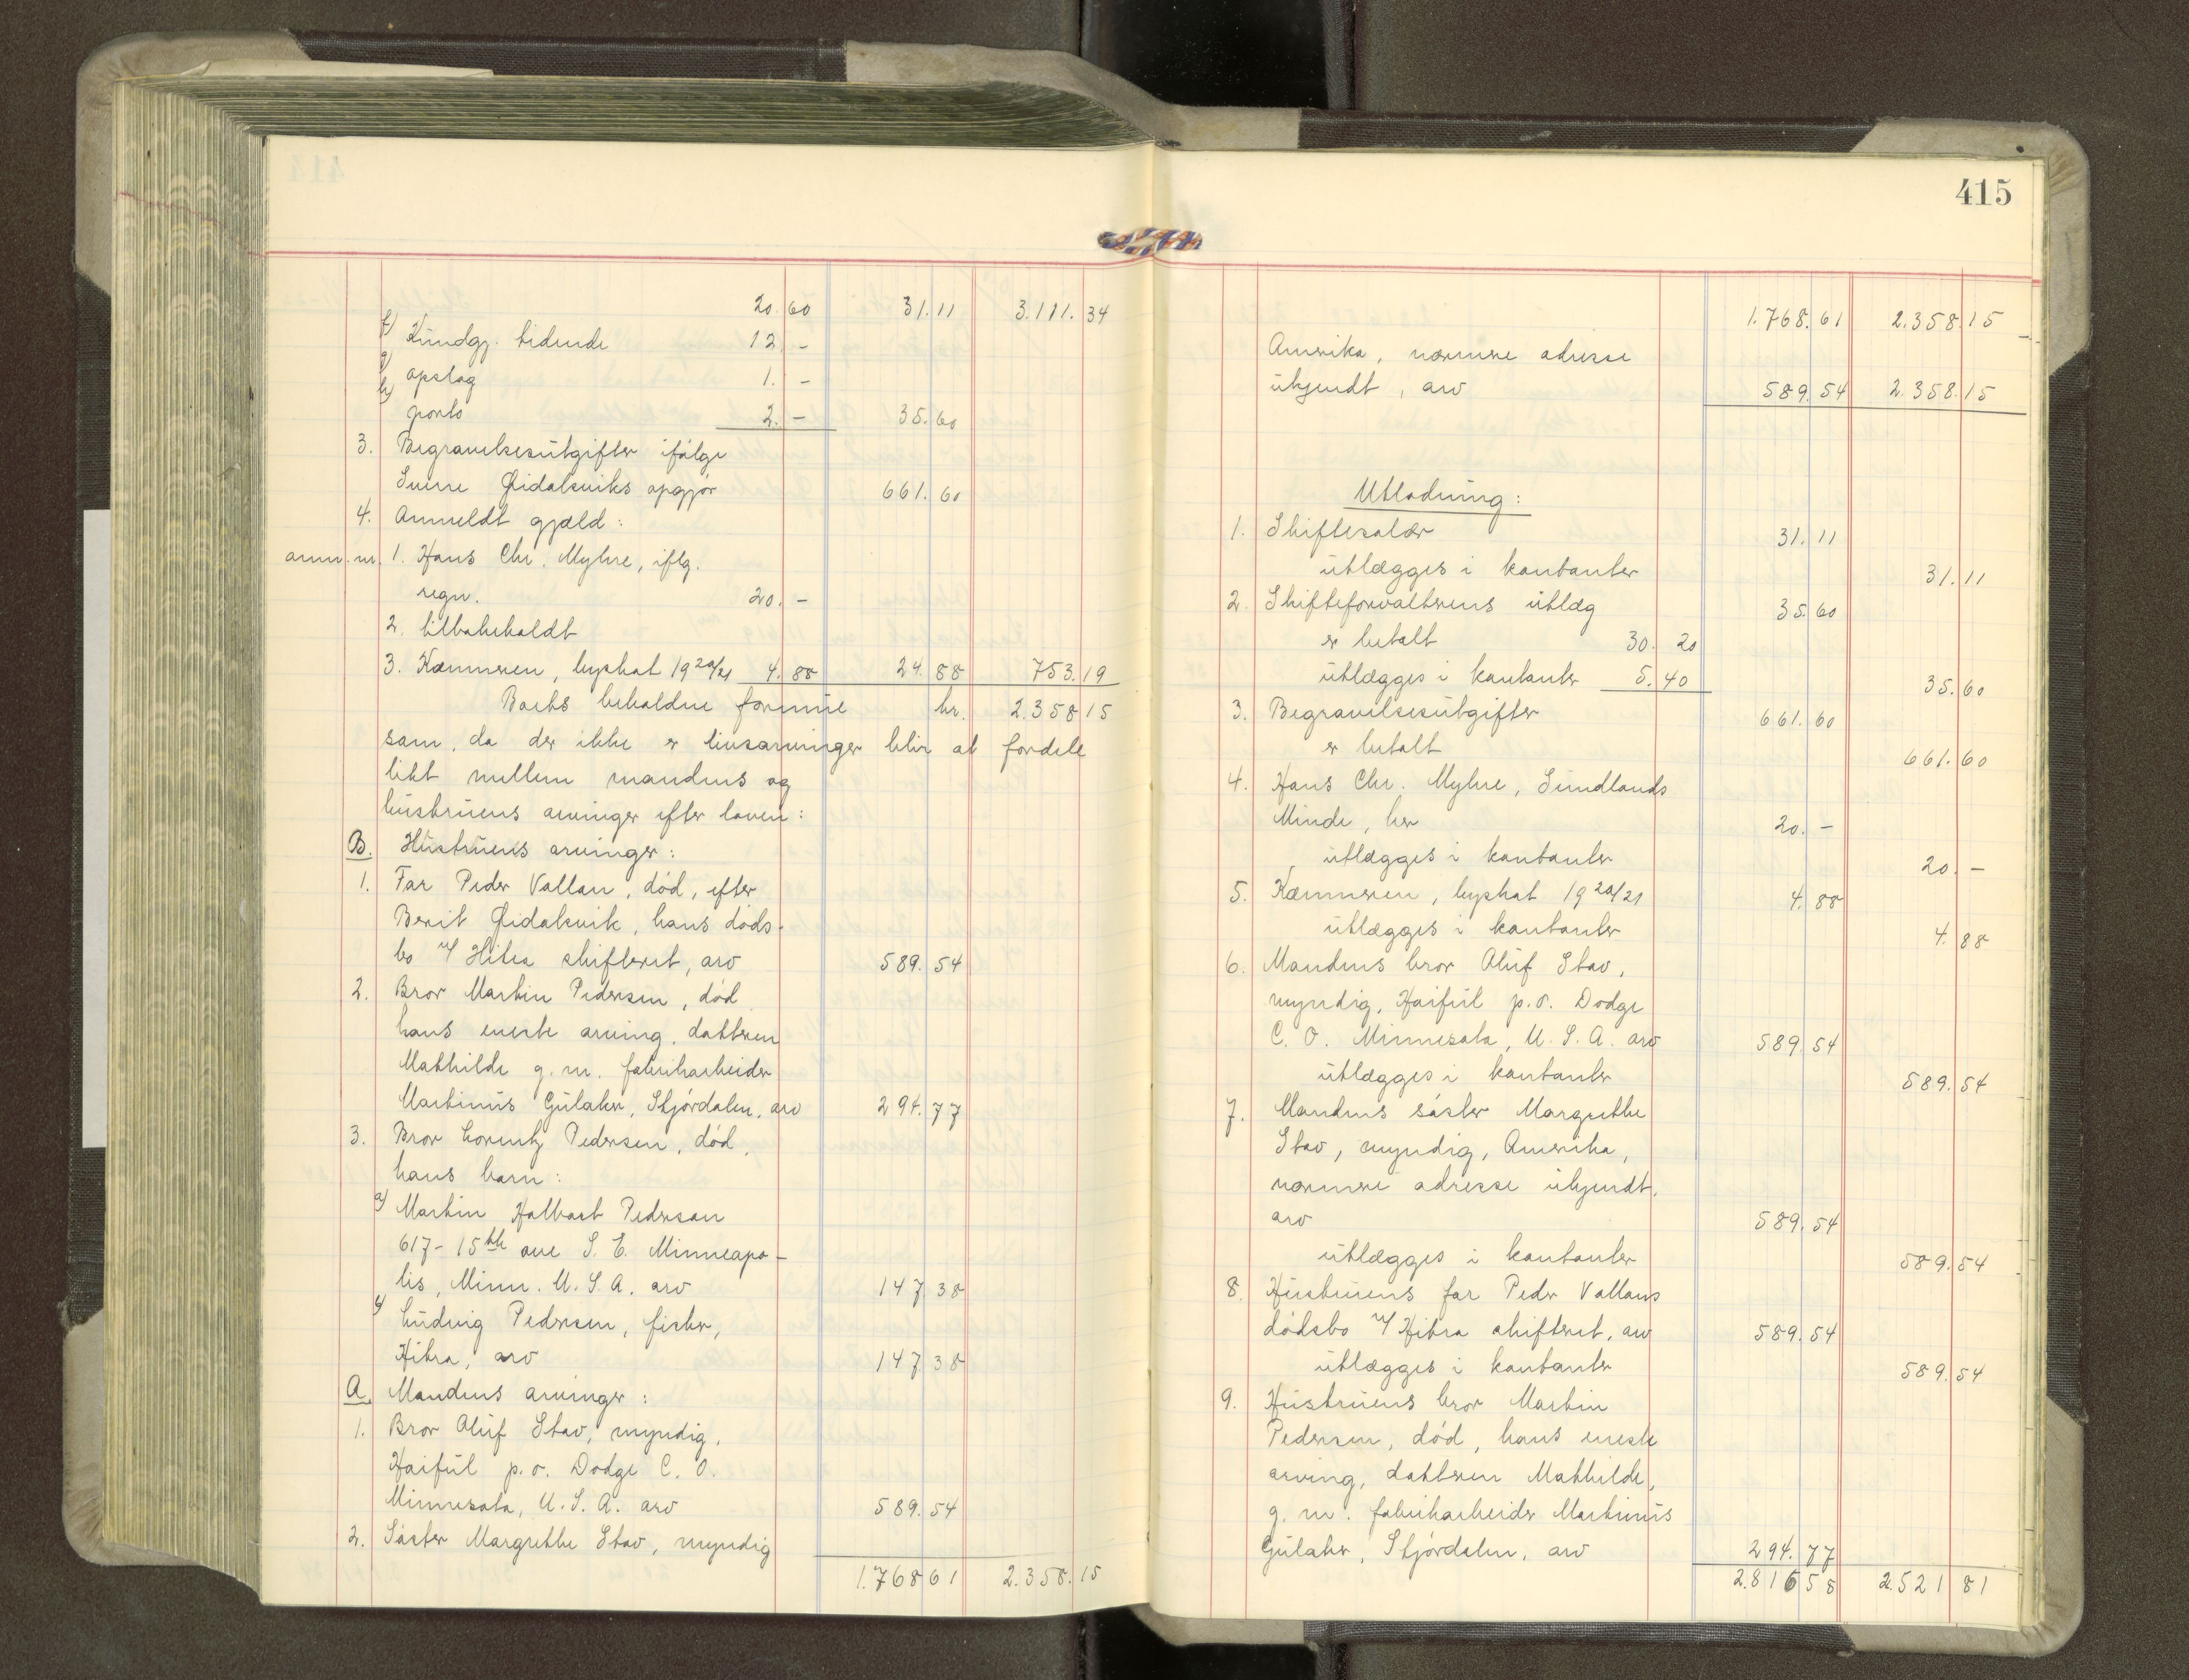 414
20.60 31.11 3.111.34
f) Kundgj. tidende 12. -
g) opslag 1. -
h) porto 2. - 35.60
3. Begravelsesutgifter ifølge
Sverre Qvidalsviks opgjør 661.60
4. Anmeldt gjæld:
anm. nr. 1. Hans Chr. Myhre, iflg.
regn. 20. -
2. tilbakekaldt
3. Kæmneren, byskat 1920/21 4.88 24.88 753.19
Boets beholdne formue kr. 2.358 15
som, da der ikke er livsarvinger blir at fordele
likt mellem mandens og
hustruens arvinger efter loven:
B. Hustruens arvinger:
1. Far Peder Vallan, død, efter
Berit Qvidalsvik, hans døds-
bo u/ Hitra skifteret, arv 589.54
2. Bror Martin Pedersen, død
hans eneste arving, datteren
Mathilde g.m. fabrikarbeider
Martinus Gulaker, Stjørdalen, arv 294.77
3. Bror Lorentz Pedersen, død,
hans barn:
a) Martin Halbart Pederson
617 - 15th ave S. E. Minneapo-
lis, Minn. U.S.A. arv 147 38
b) Ludvig Pedersen, fisker,
Hitra, arv 147 38
A. Mandens arvinger:
1. Bror Oluf Stav, myndig,
Haiful p.o. Dodge C. O.
Minnesota, U.S.A. arv 589.54
2. Søster Margrethe Stav, myndig
1.768 61 2.358.15
415
1.768.61 2.358.15
Amerika, nærmere adresse
ukjendt, arv 589.54 2.358.15
Utlodning:
1. Skiftesalær 31.11
utlægges i kontanter 31.11
2. Skifteforvalterens utlæg 35.60
er betalt 30.20
utlægges i kontanter 5.40 35.60
3. Begravelsesutgifter 661.60
er betalt 661.60
4. Hans Chr. Myhre, Sundlands
Minde, her 20. -
utlægges i kontanter 20. -
5. Kæmneren, byskat 1920/21 4.88
utlægges i kontanter 4.88
6. Mandens bror Oluf Stav,
myndig, Haiful p.o. Dodge
C. O. Minnesota, U.S.A. arv 589.54
utlægges i kontanter 589.54
7. Mandens søster Margrethe
Stav, myndig, Amerika,
nærmere adresse ukjendt,
arv 589.54
utlægges i kontanter 589.54
8. Hustruens far Peder Vallans
dødsbo u/ Hitra skifteret, arv 589.54
utlægges i kontanter 589.54
9. Hustruens bror Martin
Pedersen, død, hans eneste
arving, datteren Mathilde,
g.m. fabrikarbeider Martinus
Gulaker, Stjørdalen, arv 294.77
2.816 58 2.521 81